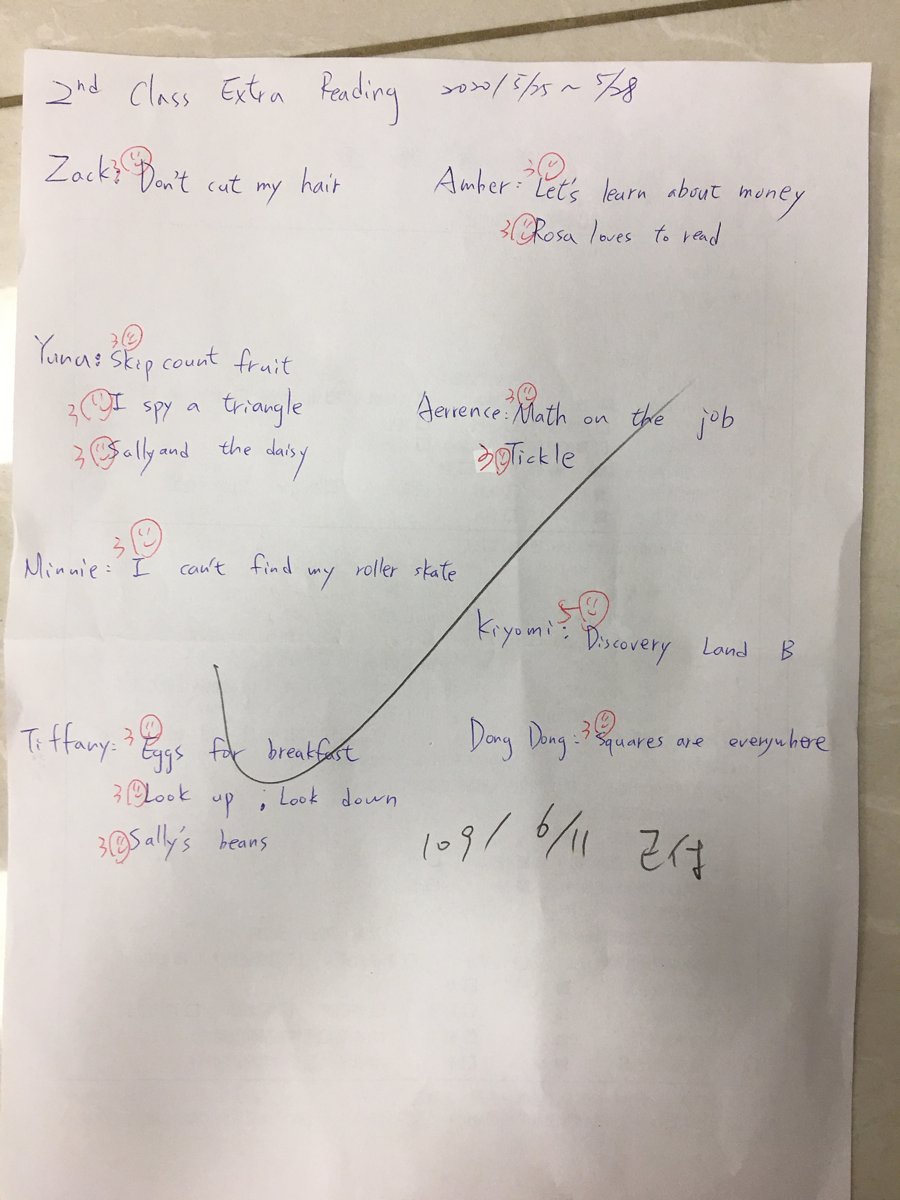 2nd Class Extra Reading 2020/5/25~5/28
Zack: 3 Don't cut my hair
Amber: 3 Let's learn about money
3 Rosa loves to read
Yuna: 3 Skip count fruit
3 I spy a triangle
3 Sally and the daisy
Aerrence: 3 Math on the job
3 Tickle
Minnie: 3 I can't find my roller skate
Kiyomi: 5 Discovery Land B
Tiffany: 3 Eggs for breakfast
3 Look up ; Look down
3 Sally's beans
Dong Dong: 3 Squares are everywhere
109/6/11 已付